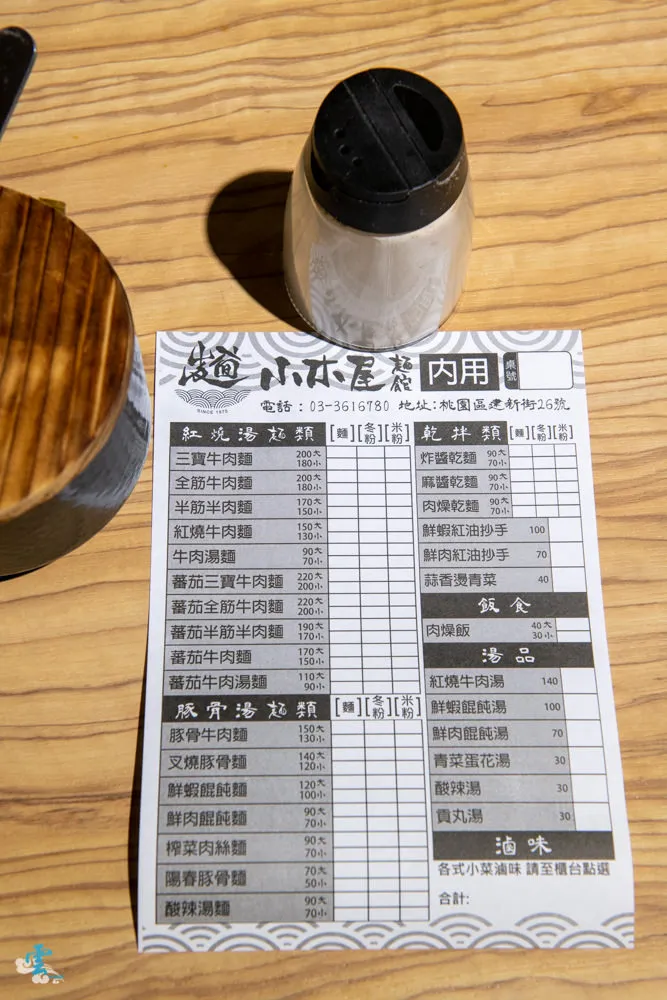 小木屋 麵館 內用 桌號
SINCE 1975
電話：03-3616780 地址:桃園區建新街26號
紅燒湯麵類 [麵][冬粉][米粉]
三寶牛肉麵 200大 180小
全筋牛肉麵 200大 180小
半筋半肉麵 170大 150小
紅燒牛肉麵 150大 130小
牛肉湯麵 90大 70小
蕃茄三寶牛肉麵 220大 200小
蕃茄全筋牛肉麵 220大 200小
蕃茄半筋半肉麵 190大 170小
蕃茄牛肉麵 170大 150小
蕃茄牛肉湯麵 110大 90小
豚骨湯麵類 [麵][冬粉][米粉]
豚骨牛肉麵 150大 130小
叉燒豚骨麵 140大 120小
鮮蝦餛飩麵 120大 100小
鮮肉餛飩麵 90大 70小
榨菜肉絲麵 90大 70小
陽春豚骨麵 70大 50小
酸辣湯麵 90大 70小
乾拌類 [麵][冬粉][米粉]
炸醬乾麵 90大 70小
麻醬乾麵 90大 70小
肉燥乾麵 90大 70小
鮮蝦紅油抄手 100
鮮肉紅油抄手 70
蒜香燙青菜 40
飯食
肉燥飯 40大 30小
湯品
紅燒牛肉湯 140
鮮蝦餛飩湯 100
鮮肉餛飩湯 70
青菜蛋花湯 30
酸辣湯 30
貢丸湯 30
滷味
各式小菜滷味 請至櫃台點選
合計:
雲